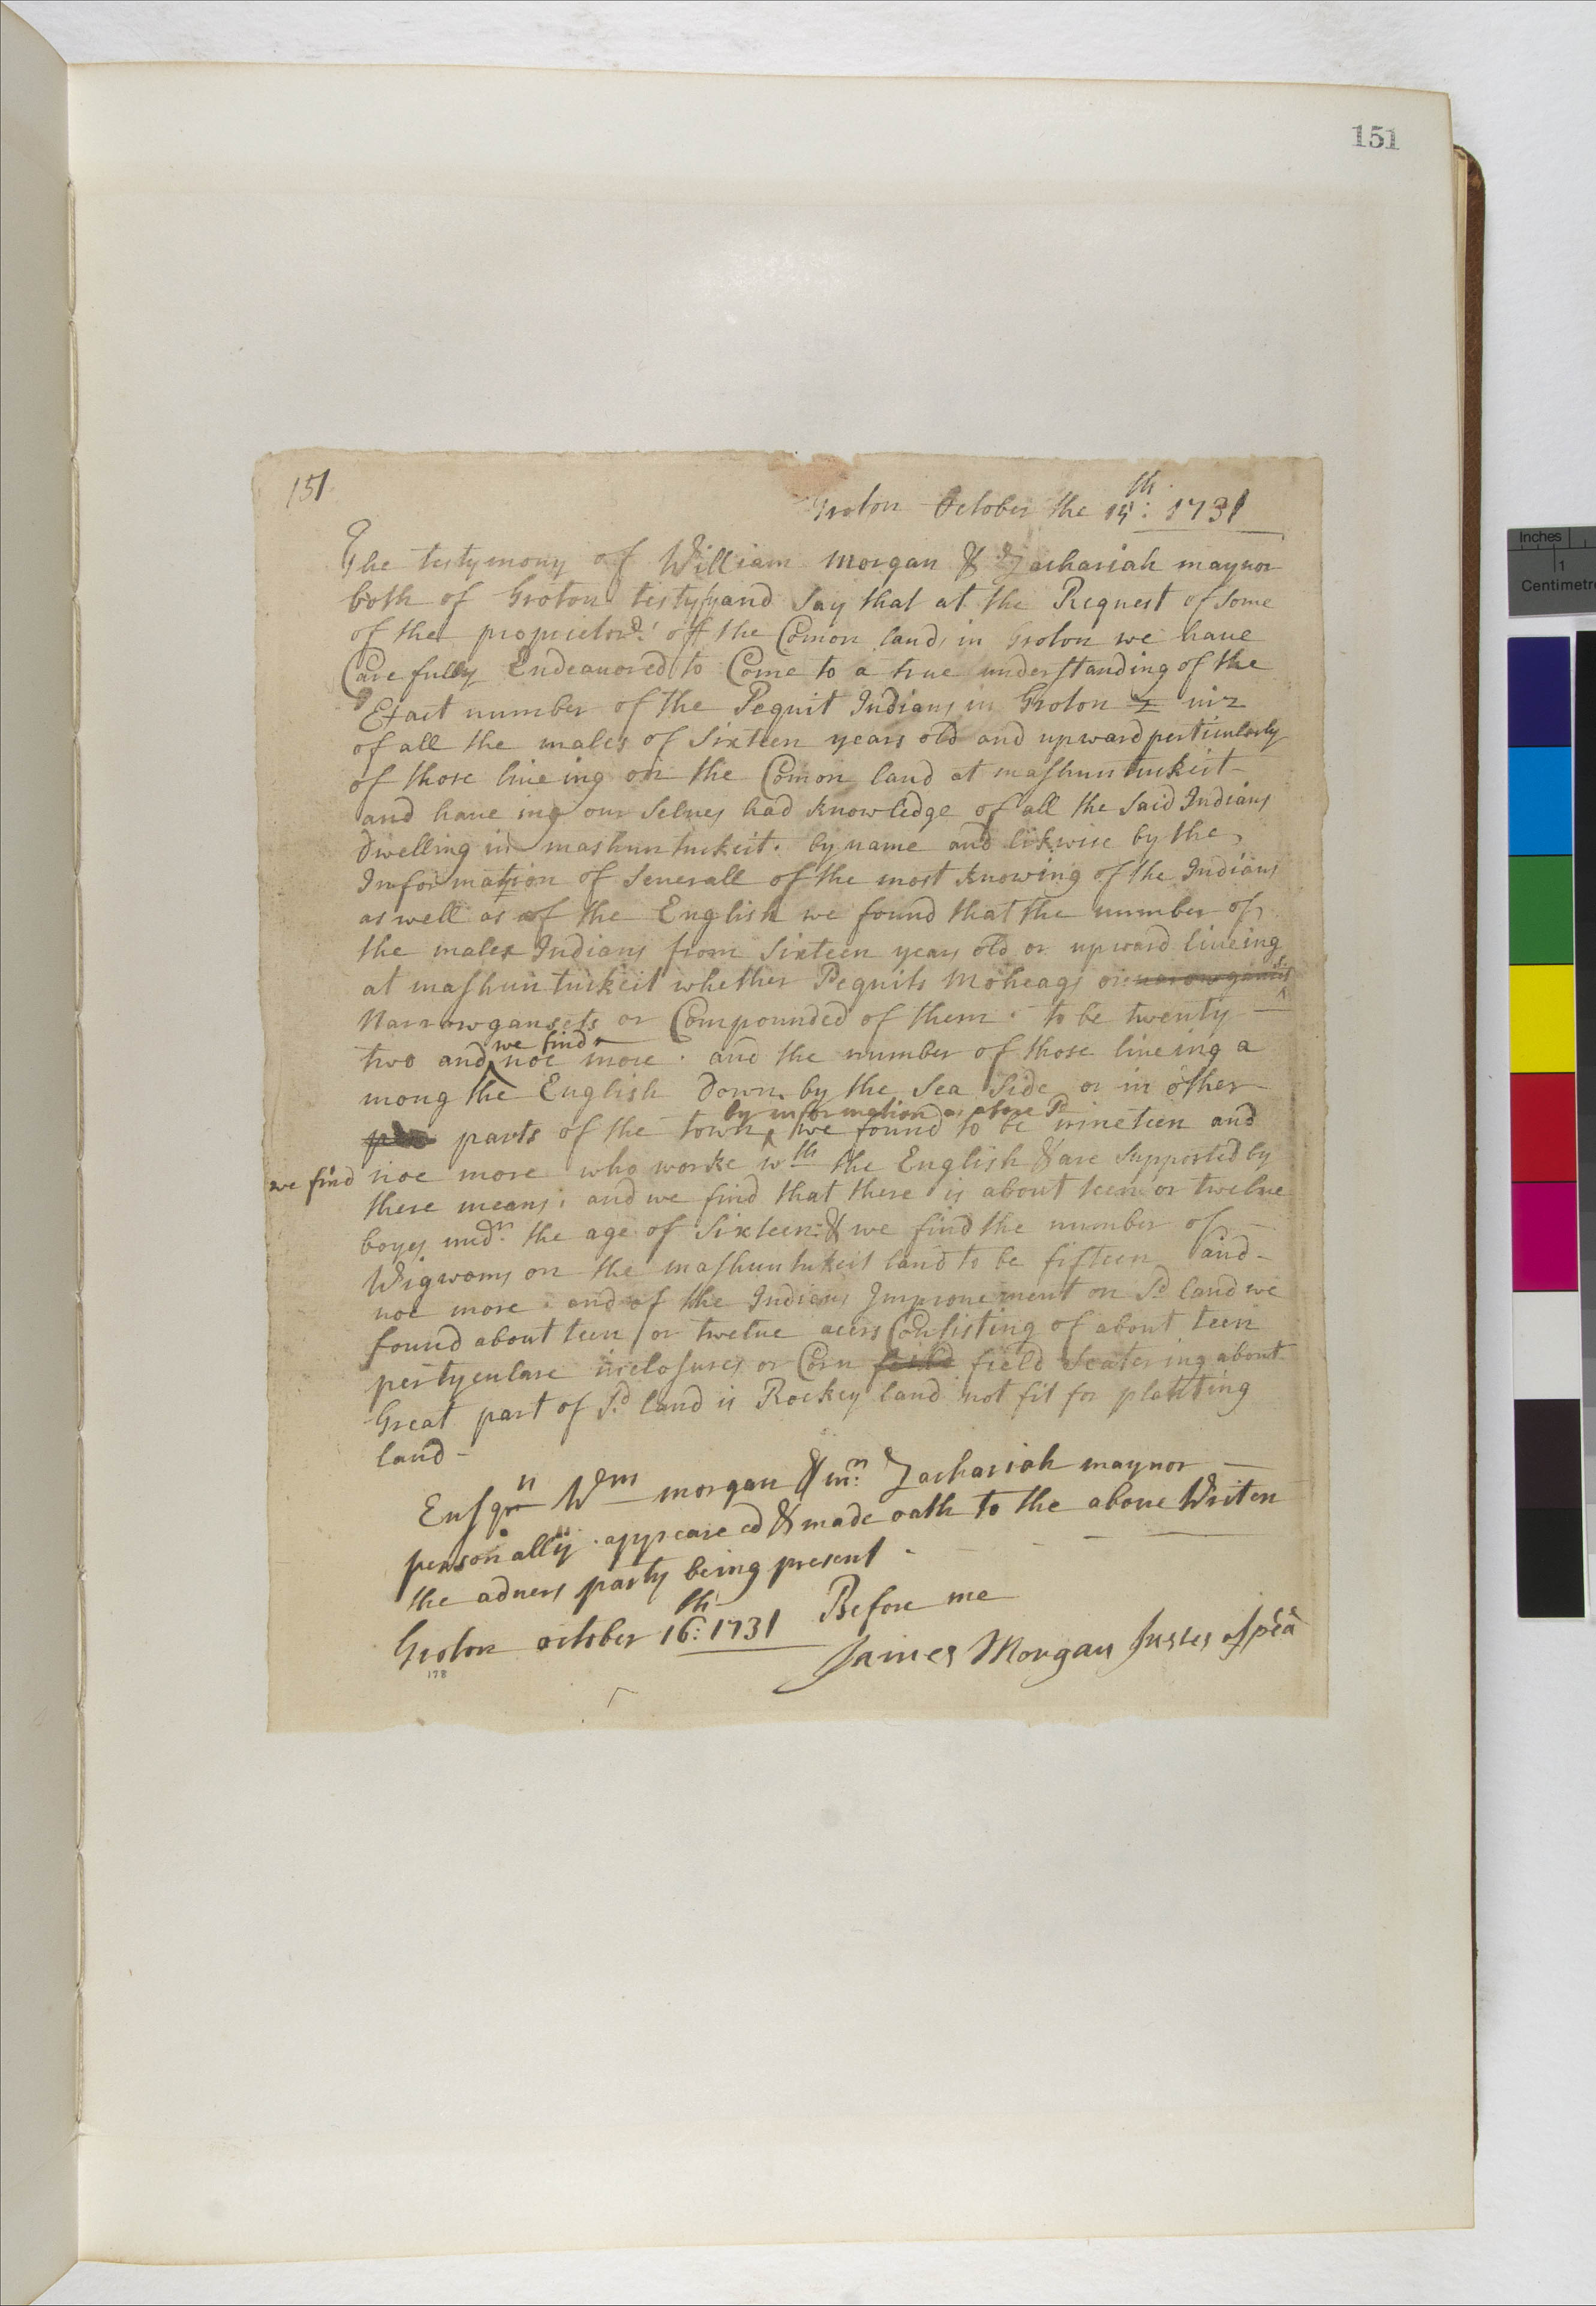 151
151
Groton October the 15th: 1731
The testymony of William morgan & Zachariah maynor
both of Groton testyfy and Say that at the Request of Some
of the proprietors of the Comon land in Groton we haue
Carefully Endeauored to Come to a true understanding of the
Exact number of the Pequit Indians in Groton viz
of all the males of Sixteen years old and upward pertickularly
of those liueing on the Comon land at mashuntuckeit
and haueing our Selues had knowledge of all the Said Indians
Dwelling in mashuntuckeit. by name and likwise by the
Information of Seuerall of the most knowing of the Indians
as well as of the English we found that the number of
the males Indians from Sixteen years old or upward liueing
at mashuntuckeit whether Pequits Moheags or narowgansits
Narrowgansets or Compounded of them. to be twenty
two and we find noe more. and the number of those liueing a
mong the English Down by the Sea Side or in other
parts of the town by information as aboue Sd we found to be nineteen and
we find noe more who worke wth the English & are Supported by
there means; and we find that there is about teen or twelue
boyes undr. the age of Sixteen: & we find the number of
Wigwoms on the mashuntukeit land to be fifteen and
noe more. and of the Indians Improuement on Sd land we
found about teen or twelue acers Consisting of about teen
pertyculare inclosures or Corn feild field Scatering about
Great part of Sd. land is Rockey land not fit for planting
land -
Ensgn Wm morgan & mr: Zachariah maynor
personally. appeareed & made oath to the aboue Writen
the aduers party being present -
Groton october 16th: 1731 Before me
James Morgan Justes of peä
178